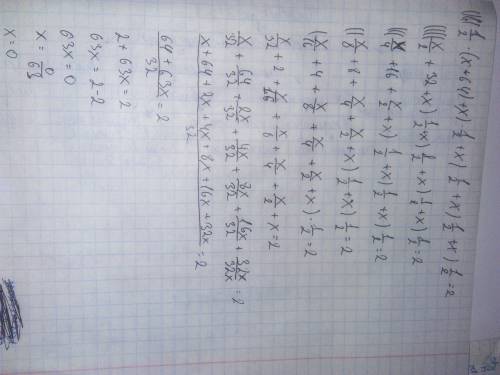 (((((½ · (x+64)+x) ½ +x) ½ +x) ½ +x) ½ = 2
((((x/2 + 32 + x) ½ +x) ½ +x) ½ +x) ½ = 2
(((x/4 + 16 + x/2 + x) ½ +x) ½ +x) ½ = 2
((x/8 + 8 + x/4 + x/2 + x) ½ +x) ½ = 2
(x/16 + 4 + x/8 + x/4 + x/2 + x) · ½ = 2
x/32 + 2 + x/16 + x/8 + x/4 + x/2 + x = 2
x/32 + 64/32 + 2x/32 + 4x/32 + 8x/32 + 16x/32 + 32x/32 = 2
(x + 64 + 2x + 4x + 8x + 16x + 32x)/32 = 2
(64 + 63x)/32 = 2
2 + 63x = 2
63x = 2-2
63x = 0
x = 0/63
x = 0